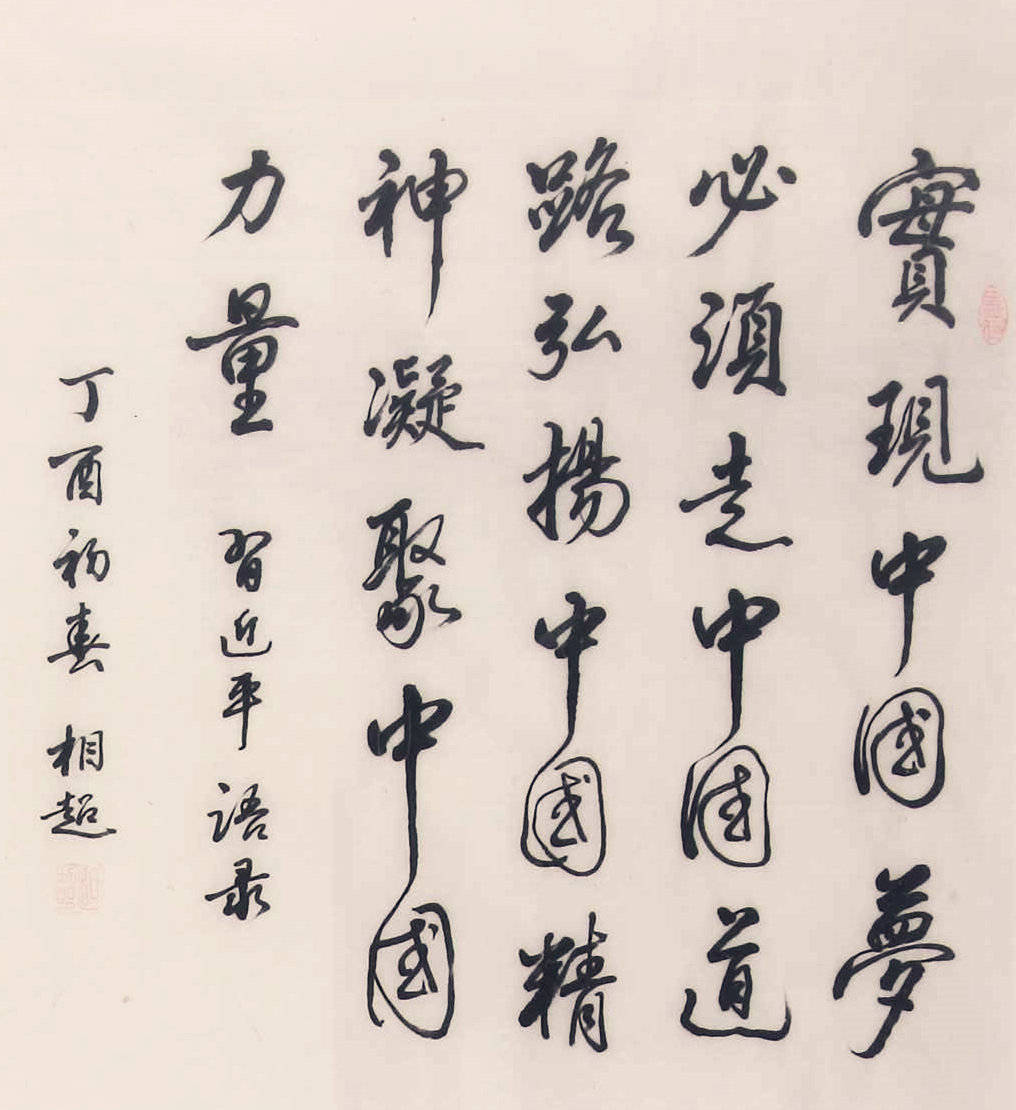 實現中國夢
必須走中國道
路弘揚中國精
神凝聚中國
力量 習近平 语录
丁酉初春 相超